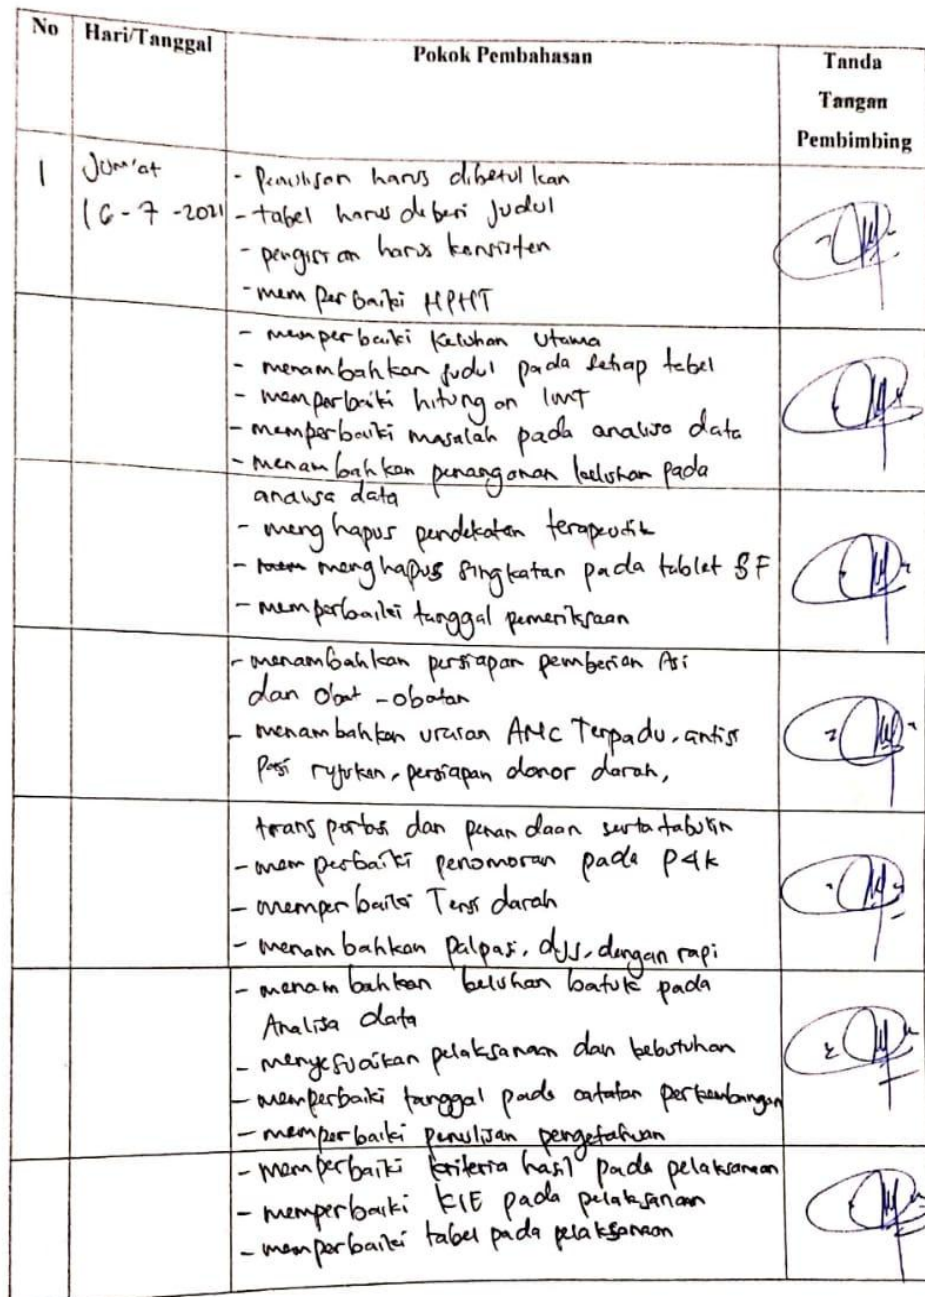 No Hari/Tanggal Pokok Pembahasan Tanda Tangan Pembimbing
1 Jum'at - Penulisan harus dibetulkan
16-7-2021 - tabel harus diberi Judul
- pengisian harus konsisten
- memperbaiki HPHT
- memperbaiki Keluhan Utama
- menambahkan judul pada setiap tabel
- memperbaiki hitungan IMT
- memperbaiki masalah pada analisa data
- menambahkan penanganan keluhan pada
analisa data
- menghapus pendekatan terapeutik
- menghapus singkatan pada tablet SF
- memperbaiki tanggal pemeriksaan
- menambahkan persiapan pemberian Asi
dan Obat-obatan
- menambahkan uraian ANC Terpadu, antisi
pasi rujukan, persiapan donor darah,
transportasi dan penandaan serta tabulin
- memperbaiki penomoran pada P4k
- memperbaiki Tensi darah
- menambahkan Palpasi, djj, dengan rapi
- menambahkan keluhan batuk pada
Analisa data
- menyesuaikan pelaksanaan dan kebutuhan
- memperbaiki tanggal pada catatan perkembangan
- memperbaiki penulisan pengetahuan
- memperbaiki kriteria hasil pada pelaksanaan
- memperbaiki KIE pada pelaksanaan
- memperbaiki tabel pada pelaksanaan